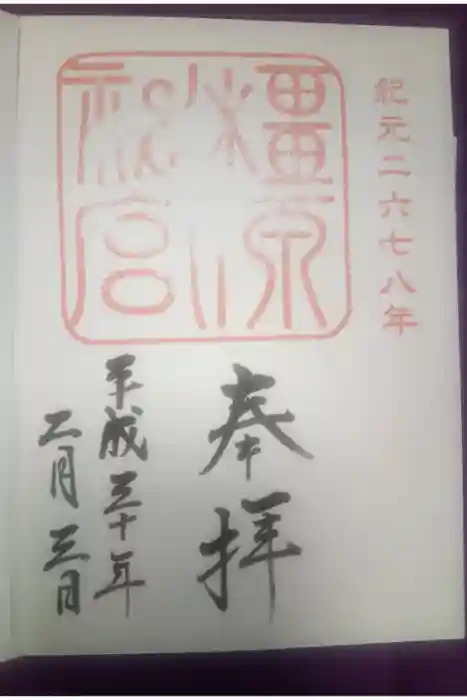 紀元二六七八年
橿原
神宮
奉拝
平成三十年
二月三日